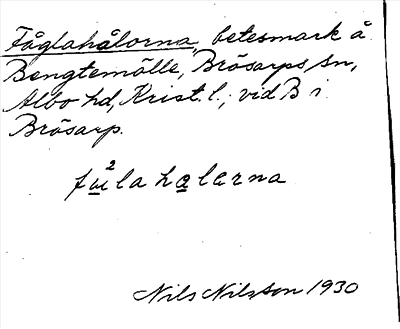 Fåglahålorna, betesmark å
Bengtemölle, Brösarps sn,
Albo hd, Krist. l.; vid B i
Brösarp.
fu²la halerna
Nils Nilsson 1930